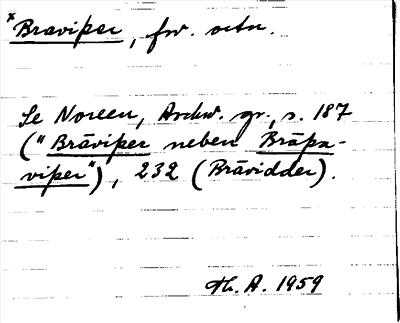 *Braviþer, fw. ortn.
Se Noreen, Aschw. gr., s. 187
("Brāviþer neben Brāþa-
viþer"), 232 (Brāvidder).
Th. A. 1959